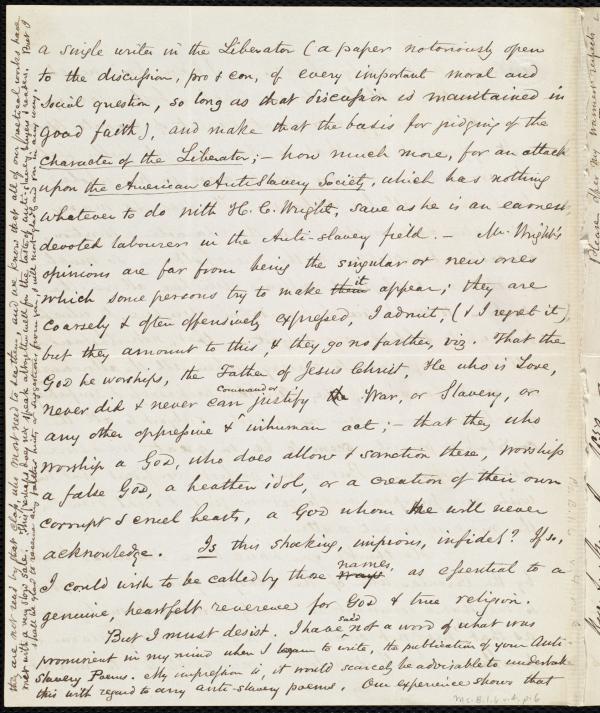 a single writer in the Liberator (a paper notoriously open
to the discussion, pro & con, of every important moral and
Social question, so long as that discussion is maintained in
good faith), and make that the basis for judging of the
Character of the Liberator; – how much more, for an attack
upon the American AntiSlavery Society, which has nothing
whatever to do with H. C. Wright, save as he is an earnest
devoted labourer in the Anti-slavery field. – Mr. Wright's
opinions are far from being the singular or new ones
which some persons try to make them it appear; they are
coarsely & often offensively expressed, I admit, (& I regret it)
but they amount to this, & they go no farther, viz. That the
God he worships, the Father of Jesus Christ, He who is Love,
never did & never can command or justify the War, or Slavery, or
any other oppressive & inhuman act; – that they who
worship a God, who does allow & sanction these, worship
a false God, a heathen idol, or a creation of their own
corrupt & cruel hearts, a God whom he will never
acknowledge. Is this shocking, impious, infidel? If so,
I could wish to be called by those names, as essential to a
genuine, heartfelt reverence for God & true religion.
But I must desist. I have said not a word of what was
prominent in my mind when I began to write, the publication of your Anti-
Slavery Poems. My impression is, it would scarcely be advisable to undertake
this with regard to any anti-slavery poems. Our experience shows that
they are not read by that class, who most need to see them, and we know that all of our poetical works have
met with a very slow sale. This perhaps does not speak altogether well for the taste of Anti-slavery buyers & readers. But I
shall be glad to receive any farther hints or suggestions from you, & will most gladly aid you in any way.
Please offer my warmest respects
Ms. B.1.6 v. p. 6